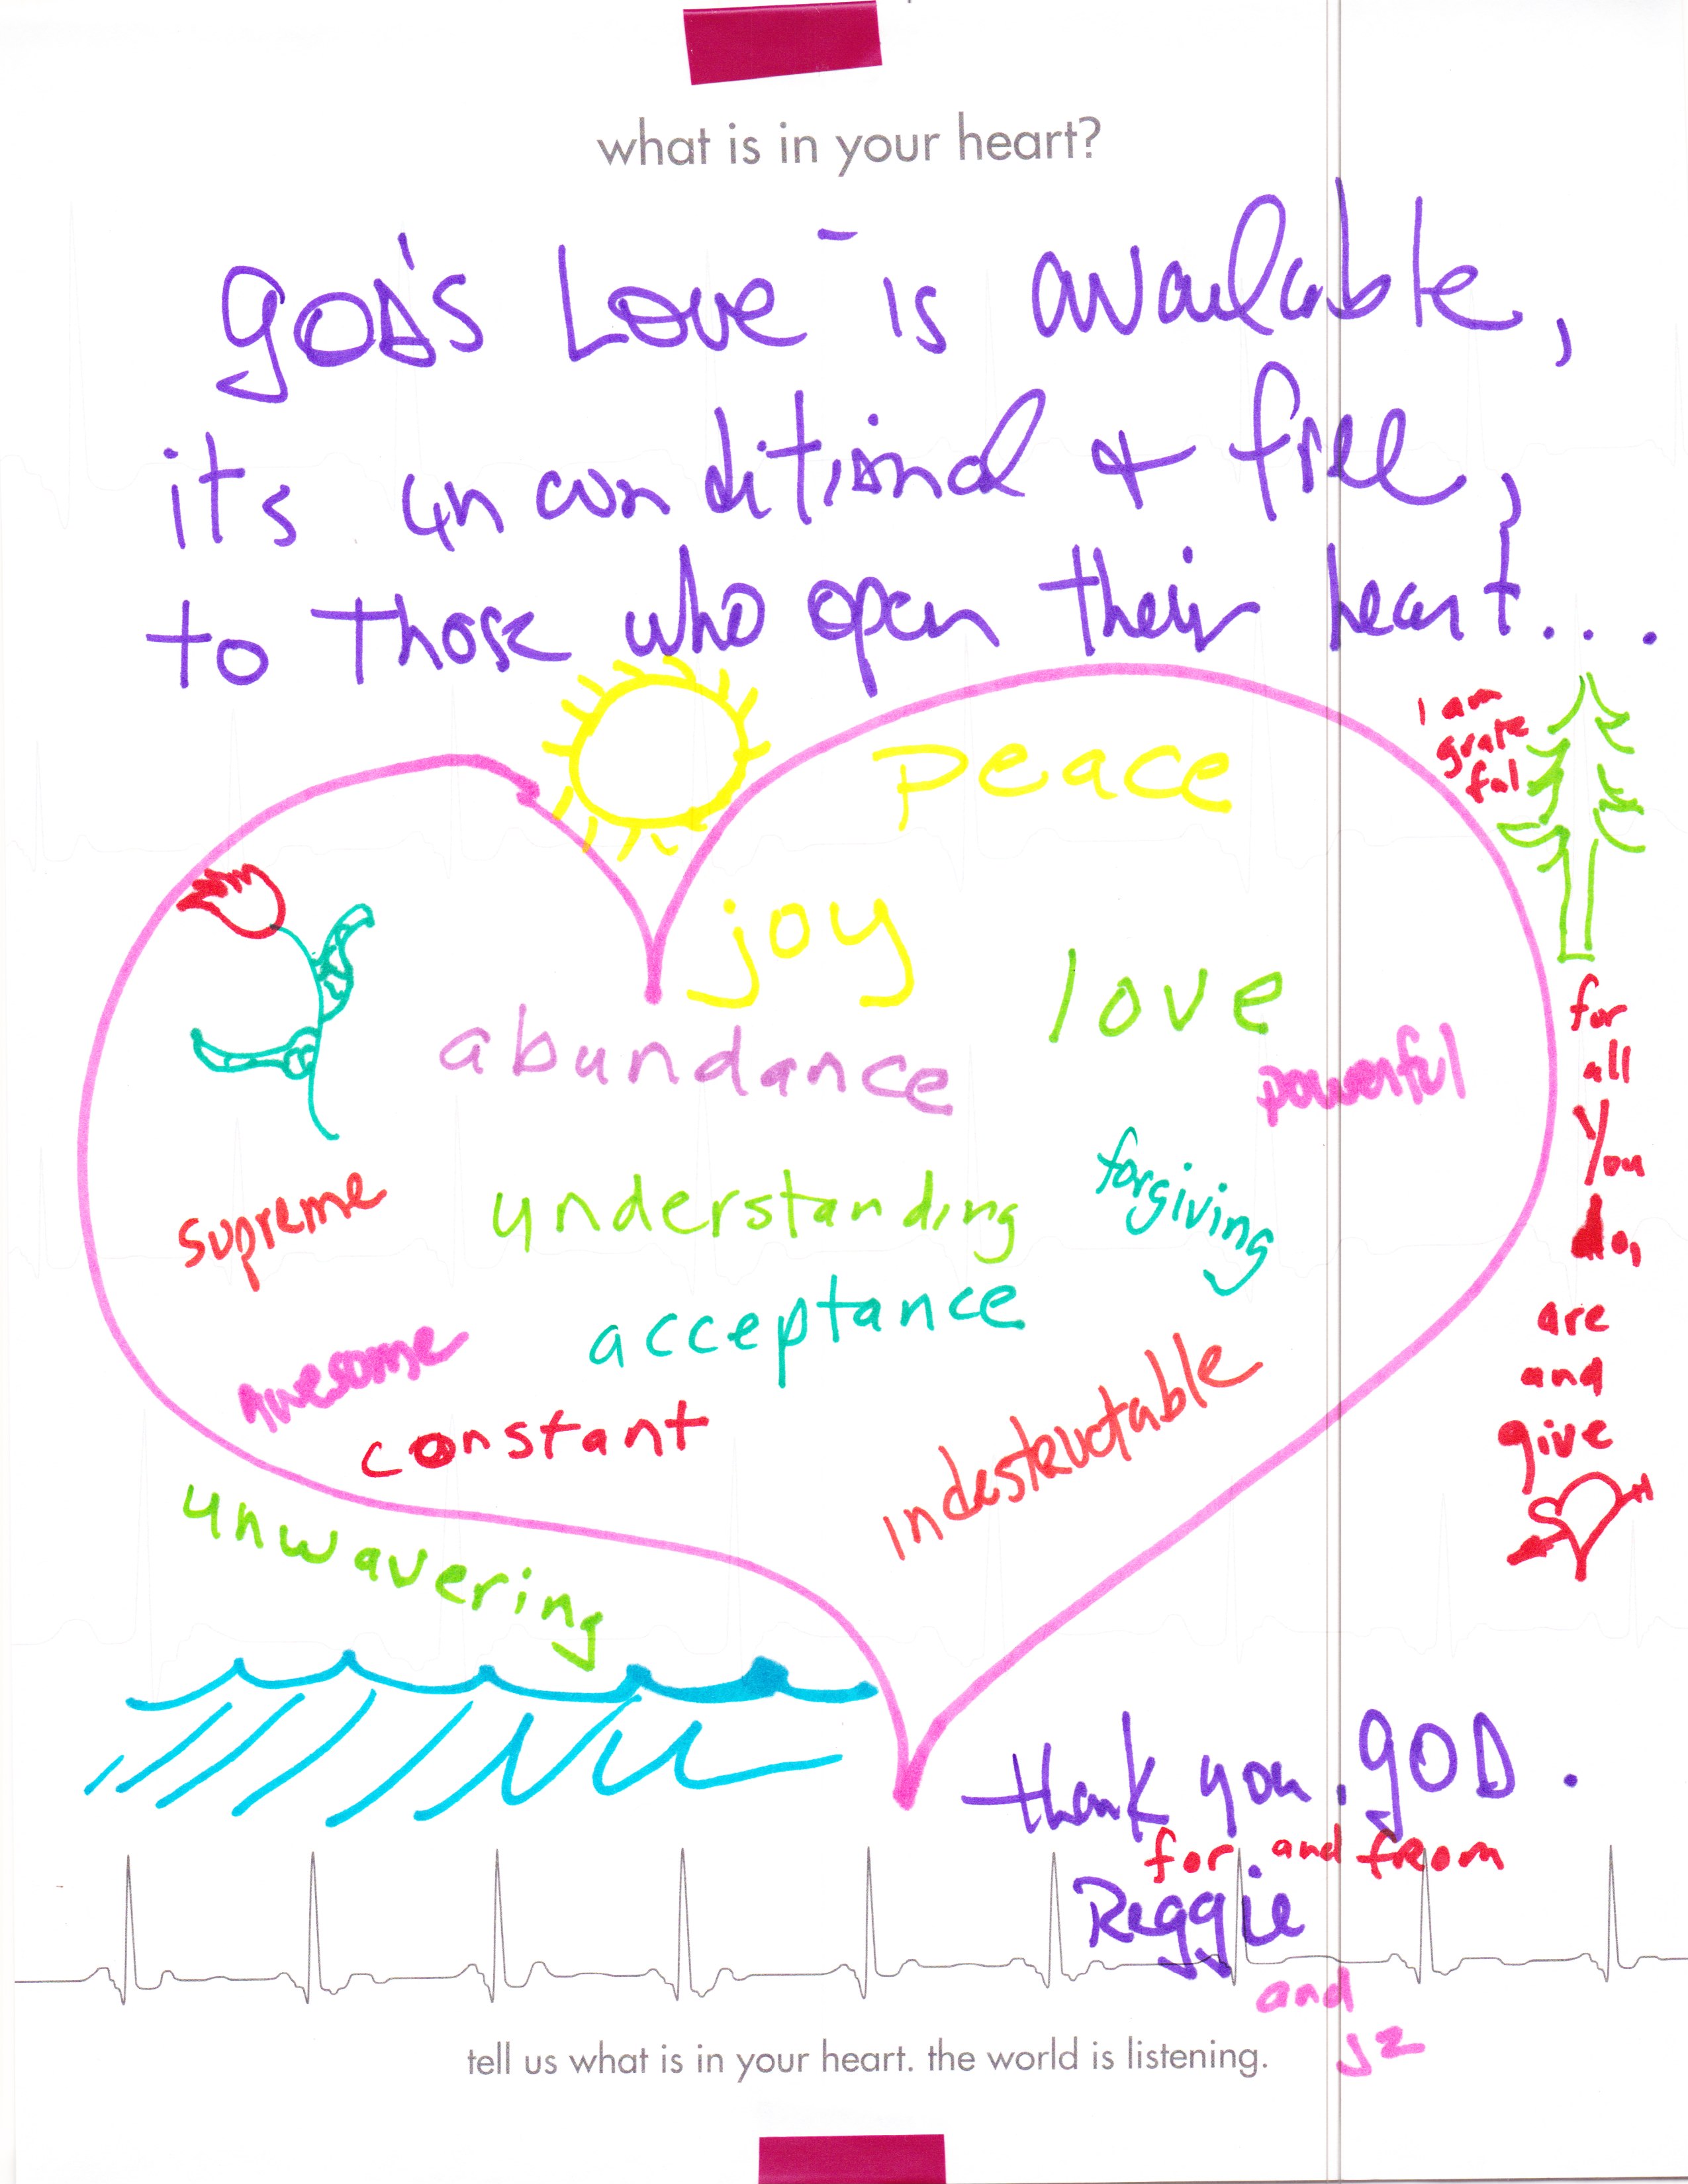 what is in your heart?
goD's Love is available,
it's unconditional & free,
to those who open their heart....
I am
grate
ful
peace
joy
love
abundance
powerful
for
all
you
do,
are
and
give
supreme
understanding
forgiving
acceptance
awesome
constant
indestructable
unwavering
thank you, goD.
for. and from
Reggie
and
JZ
tell us what is in your heart. the world is listening.